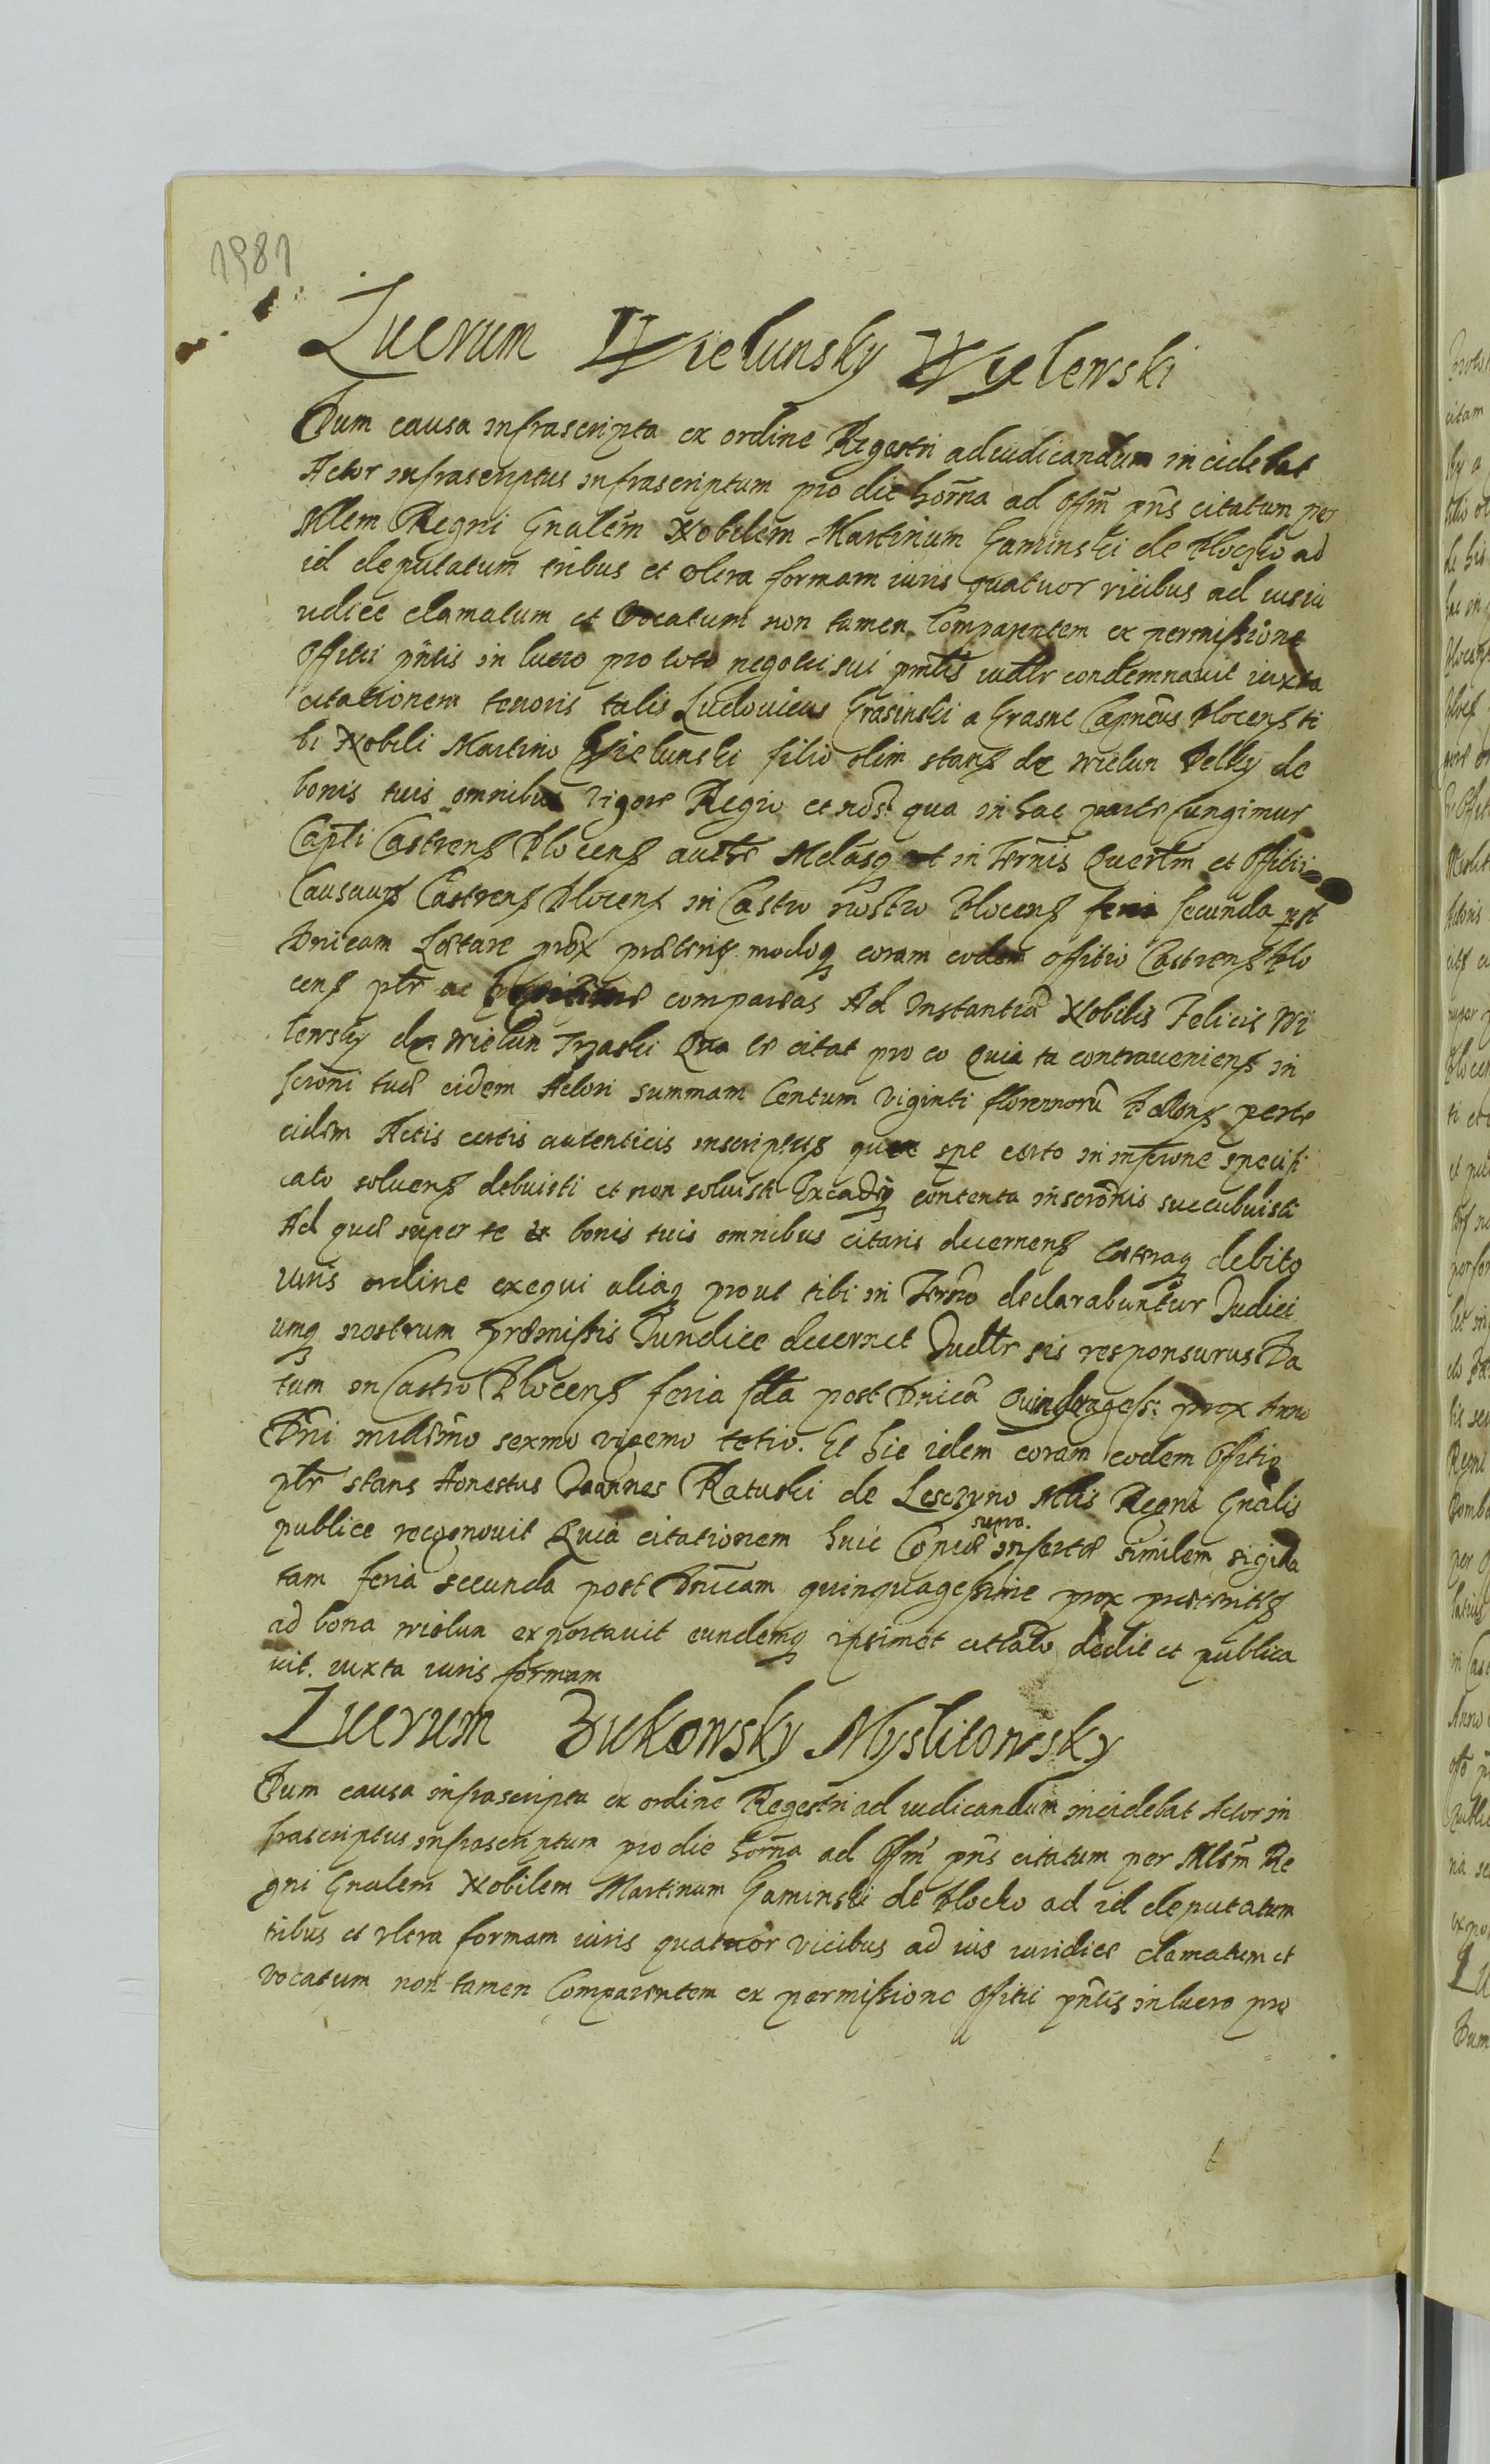 1981
Lucrum Wielunsky Wyelewski
Dum causa infrascripta ex ordine Regestri adiudicandum incidebat
Actor infrascriptus infrascriptum pro die horna ad Offm pns citatum per
Mlem Regni Gnalem Nobilem Martinum Gaminski de Plocko ad
id deputatum tribus et vltra formam iuris quatuor vicibus ad ius iu
ridice clamatum et vocatum non tamen Comparentem ex permissione
Offitii pntis in lucro pro toto negotii sui pmtis iudtr condemnauit iuxta
citationem tenoris talis Ludouicus Crasinski a Crasne Capneus Plocens ti
bi Nobili Martino Wielunski filio olim stans de Wielun de
bonis tuis omnibus vigore Regio et nos: qua in hac parte fungimur
Capti Castrens Plocens autte Mdasq ut in Termis Querlm et Offitii
Causaurs Castrens Plocens in Castro nostro Plocens feria secunda post
Dnicam Laetare prox praeterit modoq coram eodem offitio Castrens Plo
cens ptr ac compareas Ad Instantia Nobilis Felicis Wi
lewsky de Wielun Trzaski Qua te citat pro eo Quia tu contraueniens in
scroni tuae eidem Actori summam Centum viginti florenorum Polons per te
eidem Actis certis autenticis inscriptus quae spe certo in inscrone specifi
cato soluens debuisti et non soluisti Excadiq contenta inscronis succubuisti
Ad quae super te et bonis tuis omnibus citaris decernens Caeteraq debito
iuris ordine exequi aliaq prout tibi in Termo declarabuntur Judici
umq nostrum praemissis Juridice decernet Judtr sis responsurus Da
tum in Castro Plocens feria scda post Dnica Quindragess: prox Anno
Dni millesimo sexmo vigemo tetio. Et hic idem coram eodem Offitio
ptr stans Honestus Joannes Ratuski de Lesczyno Mlis Regni Gnalis
publice recognouit Quia citationem huic Copiae supra. insertae similem sigilla
tam feria secunda post Dnicam quinquagessime prox praeteritis
ad bona Wielun exportauit eundemq ipsimet citato dedit et publica
uit. iuxta iuris formam
Lucrum Bukowsky Myslitowsky
Dum causa infrascripta ex ordine Regestri ad iudicandum incidebat Actor in
frascriptus infrascriptum pro die horna ad Offm pns citatum per Mlem Re
gni Gnalem Nobilem Martinum Gaminski de Plocko ad id deputatum
tribus et vltra formam iuris quatuor vicibus ad ius iuridice clamatum et
vocatum non tamen Comparentem ex permissione Offitii pntis in lucro pro